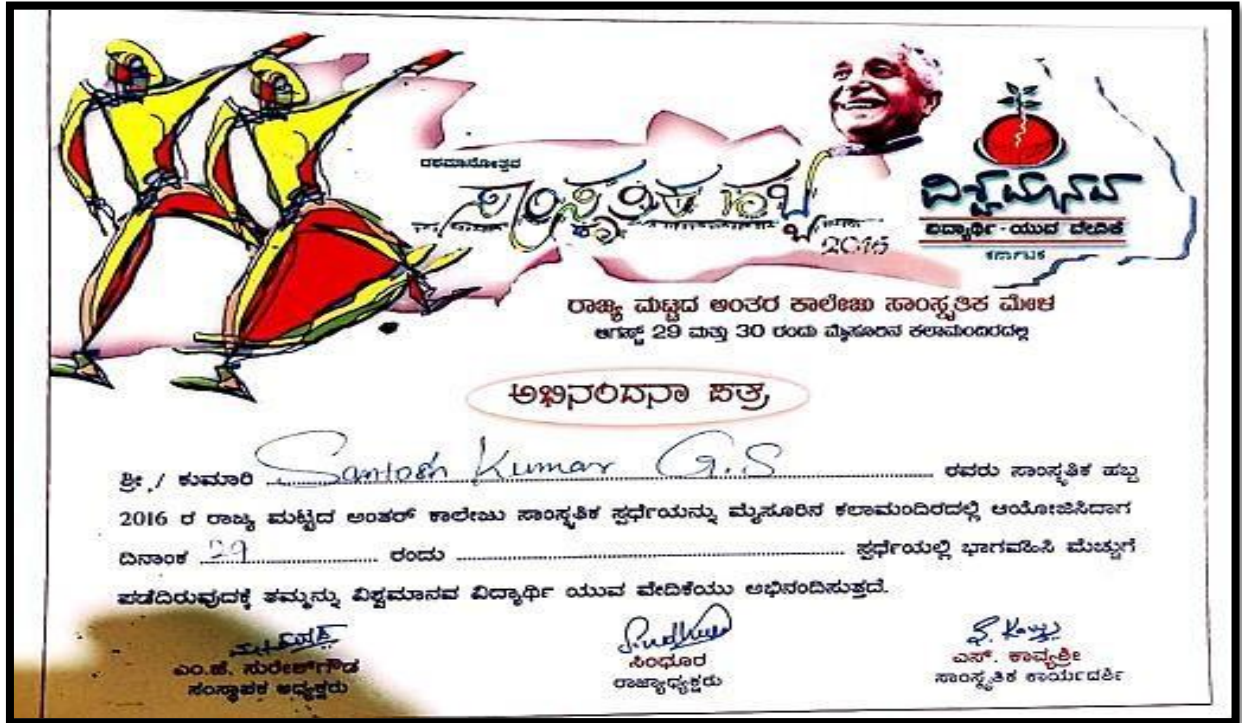 ದಶಮಾನೋತ್ಸವ
ಸಾಂಸ್ಕೃತಿಕ ಹಬ್ಬ
2016
ವಿಶ್ವಮಾನವ
ವಿದ್ಯಾರ್ಥಿ - ಯುವ ವೇದಿಕೆ
ಕರ್ನಾಟಕ
ರಾಜ್ಯ ಮಟ್ಟದ ಅಂತರ ಕಾಲೇಜು ಸಾಂಸ್ಕೃತಿಕ ಮೇಳ
ಆಗಸ್ಟ್ 29 ಮತ್ತು 30 ರಂದು ಮೈಸೂರಿನ ಕಲಾಮಂದಿರದಲ್ಲಿ
ಅಭಿನಂದನಾ ಪತ್ರ
ಶ್ರೀ / ಕುಮಾರಿ Santosh Kumar G.S ರವರು ಸಾಂಸ್ಕೃತಿಕ ಹಬ್ಬ
2016 ರ ರಾಜ್ಯ ಮಟ್ಟದ ಅಂತರ್ ಕಾಲೇಜು ಸಾಂಸ್ಕೃತಿಕ ಸ್ಪರ್ಧೆಯನ್ನು ಮೈಸೂರಿನ ಕಲಾಮಂದಿರದಲ್ಲಿ ಆಯೋಜಿಸಿದಾಗ
ದಿನಾಂಕ 29 ರಂದು ಸ್ಪರ್ಧೆಯಲ್ಲಿ ಭಾಗವಹಿಸಿ ಮೆಚ್ಚುಗೆ
ಪಡೆದಿರುವುದಕ್ಕೆ ತಮ್ಮನ್ನು ವಿಶ್ವಮಾನವ ವಿದ್ಯಾರ್ಥಿ ಯುವ ವೇದಿಕೆಯು ಅಭಿನಂದಿಸುತ್ತದೆ.
ಎಂ.ಹೆಚ್. ಸುರೇಶ್‌ಗೌಡ
ಸಂಸ್ಥಾಪಕ ಅಧ್ಯಕ್ಷರು
ಸಿಂಧೂರ
ರಾಜ್ಯಾಧ್ಯಕ್ಷರು
ಎಸ್. ಕಾವ್ಯಶ್ರೀ
ಸಾಂಸ್ಕೃತಿಕ ಕಾರ್ಯದರ್ಶಿ